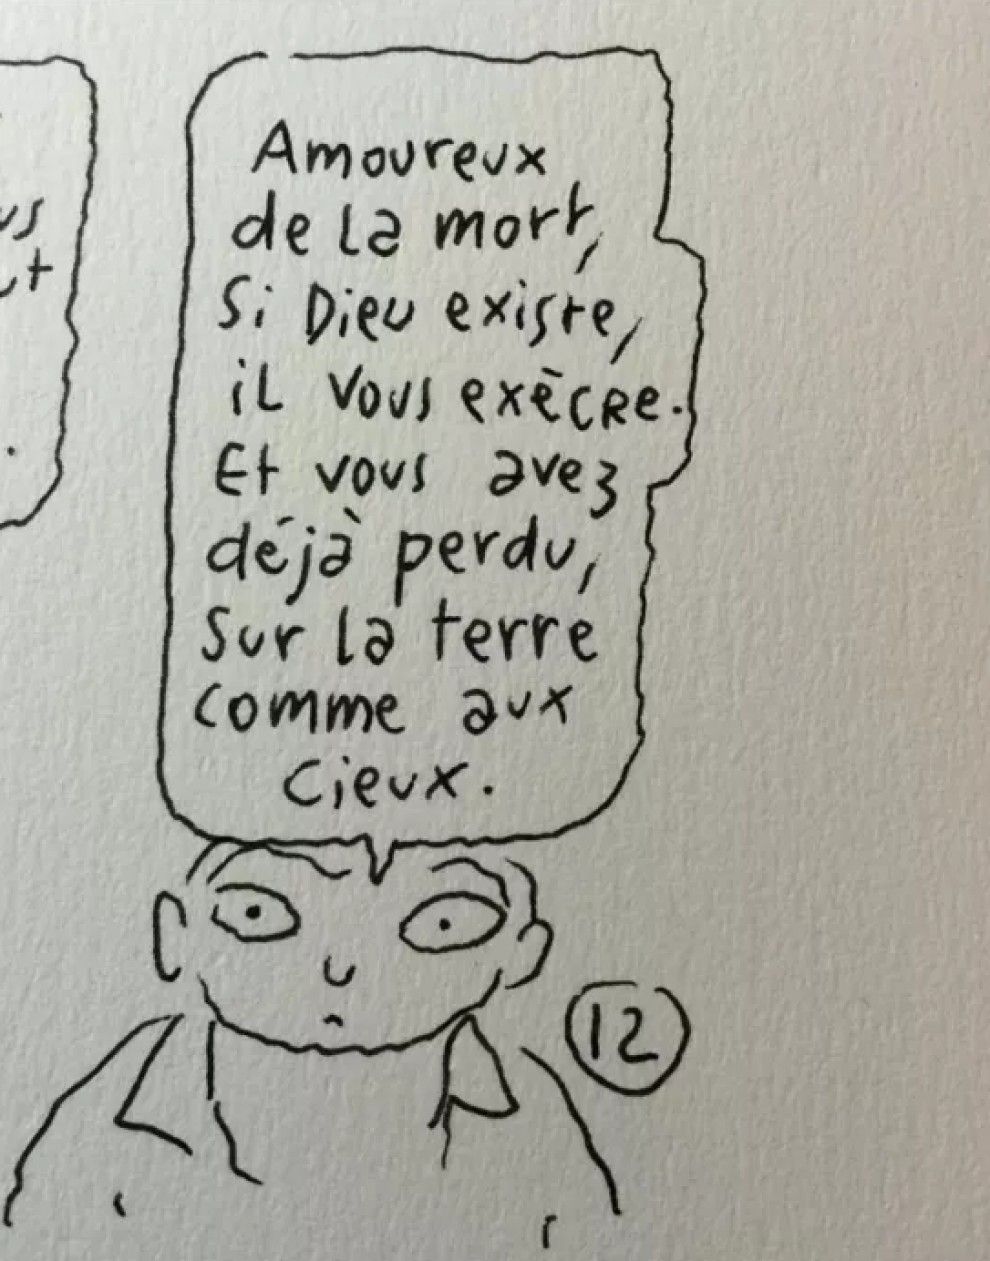 us
Amoureux
de la mort,
Si Dieu existe,
il vous exècre.
Et vous avez
déjà perdu,
Sur la terre
comme aux
cieux.
12